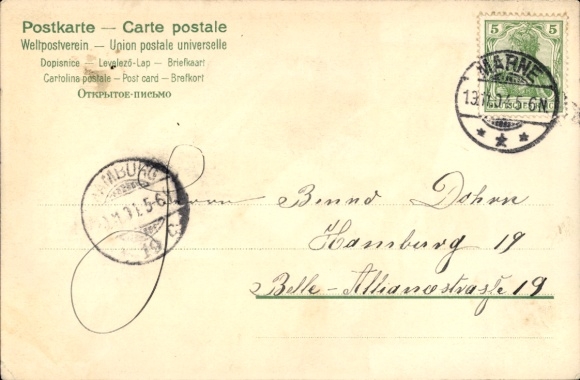 Postkarte – Carte postale
Weltpostverein – Union postale universelle
Dopisnice – Levelező-Lap – Briefkaart
Cartolina postale – Post card – Brefkort
Открытое-письмо
5 5
MARNE
13.11.04. 5-6N.
* 2 *
HAMBURG
5-6
19
Herrn Bernd Dohrn
Hamburg 19
Belle-Alliancestraße 19